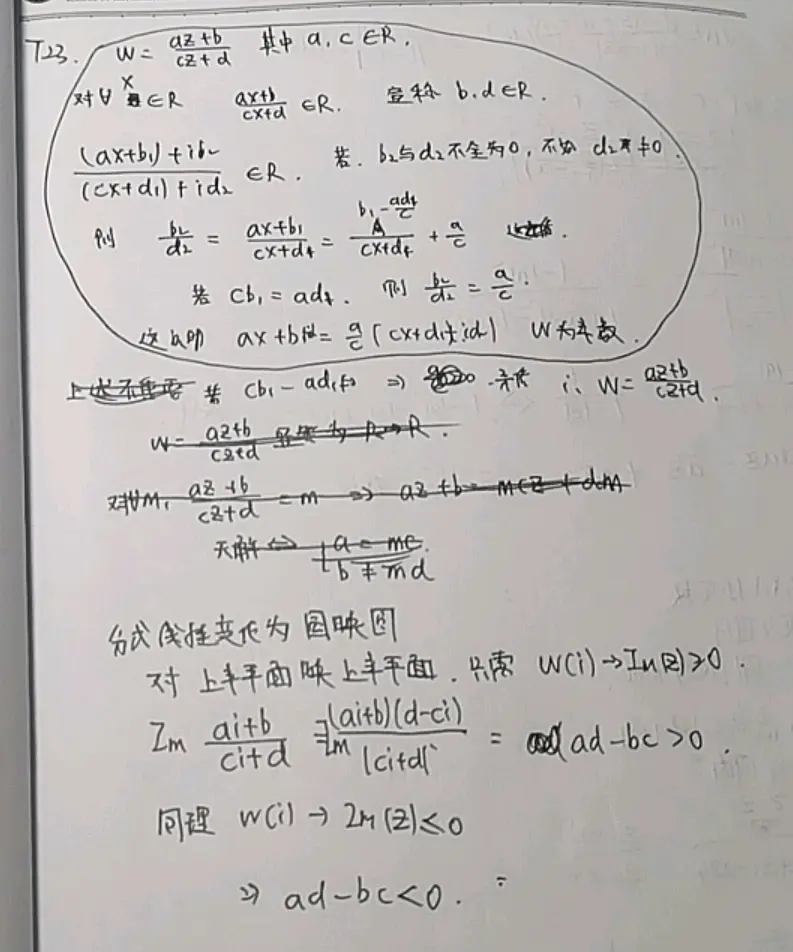 T23. W = \frac{az+b}{cz+d} 其中 a, c ∈ R.
对∀ x ∈ R \frac{ax+b}{cx+d} ∈ R. 宣称 b, d ∈ R.
\frac{(ax+b_1)+ib_2}{(cx+d_1)+id_2} ∈ R. 若. b_2与d_2不全为0, 不妨 d_2 ≠ 0.
则 \frac{b_2}{d_2} = \frac{ax+b_1}{cx+d_1} = \frac{b_1-\frac{ad_1}{c}}{cx+d_1} + \frac{a}{c}
若 cb_1 = ad_1. 则 \frac{b_2}{d_2} = \frac{a}{c}.
这即 = \frac{a}{c}(cx+d_1+id_2) W为常数.
若 cb_1 - ad_1 ⇒ ∴ W = \frac{az+b}{cz+d}.
W = \frac{az+b}{cz+d} R→R.
对∀m, \frac{az+b}{cz+d} = m ⇒ az+b = mcz+dm
无解 ⇔ { a = mc. b ≠ md
分式线性变化为圆映圆
对上半平面映上半平面. 只需 W(i) → Im(z) ≥ 0.
Im \frac{ai+b}{ci+d} = Im \frac{(ai+b)(d-ci)}{|ci+d|^2} = ad-bc > 0.
同理 W(i) → Im(z) ≤ 0
⇒ ad-bc < 0.